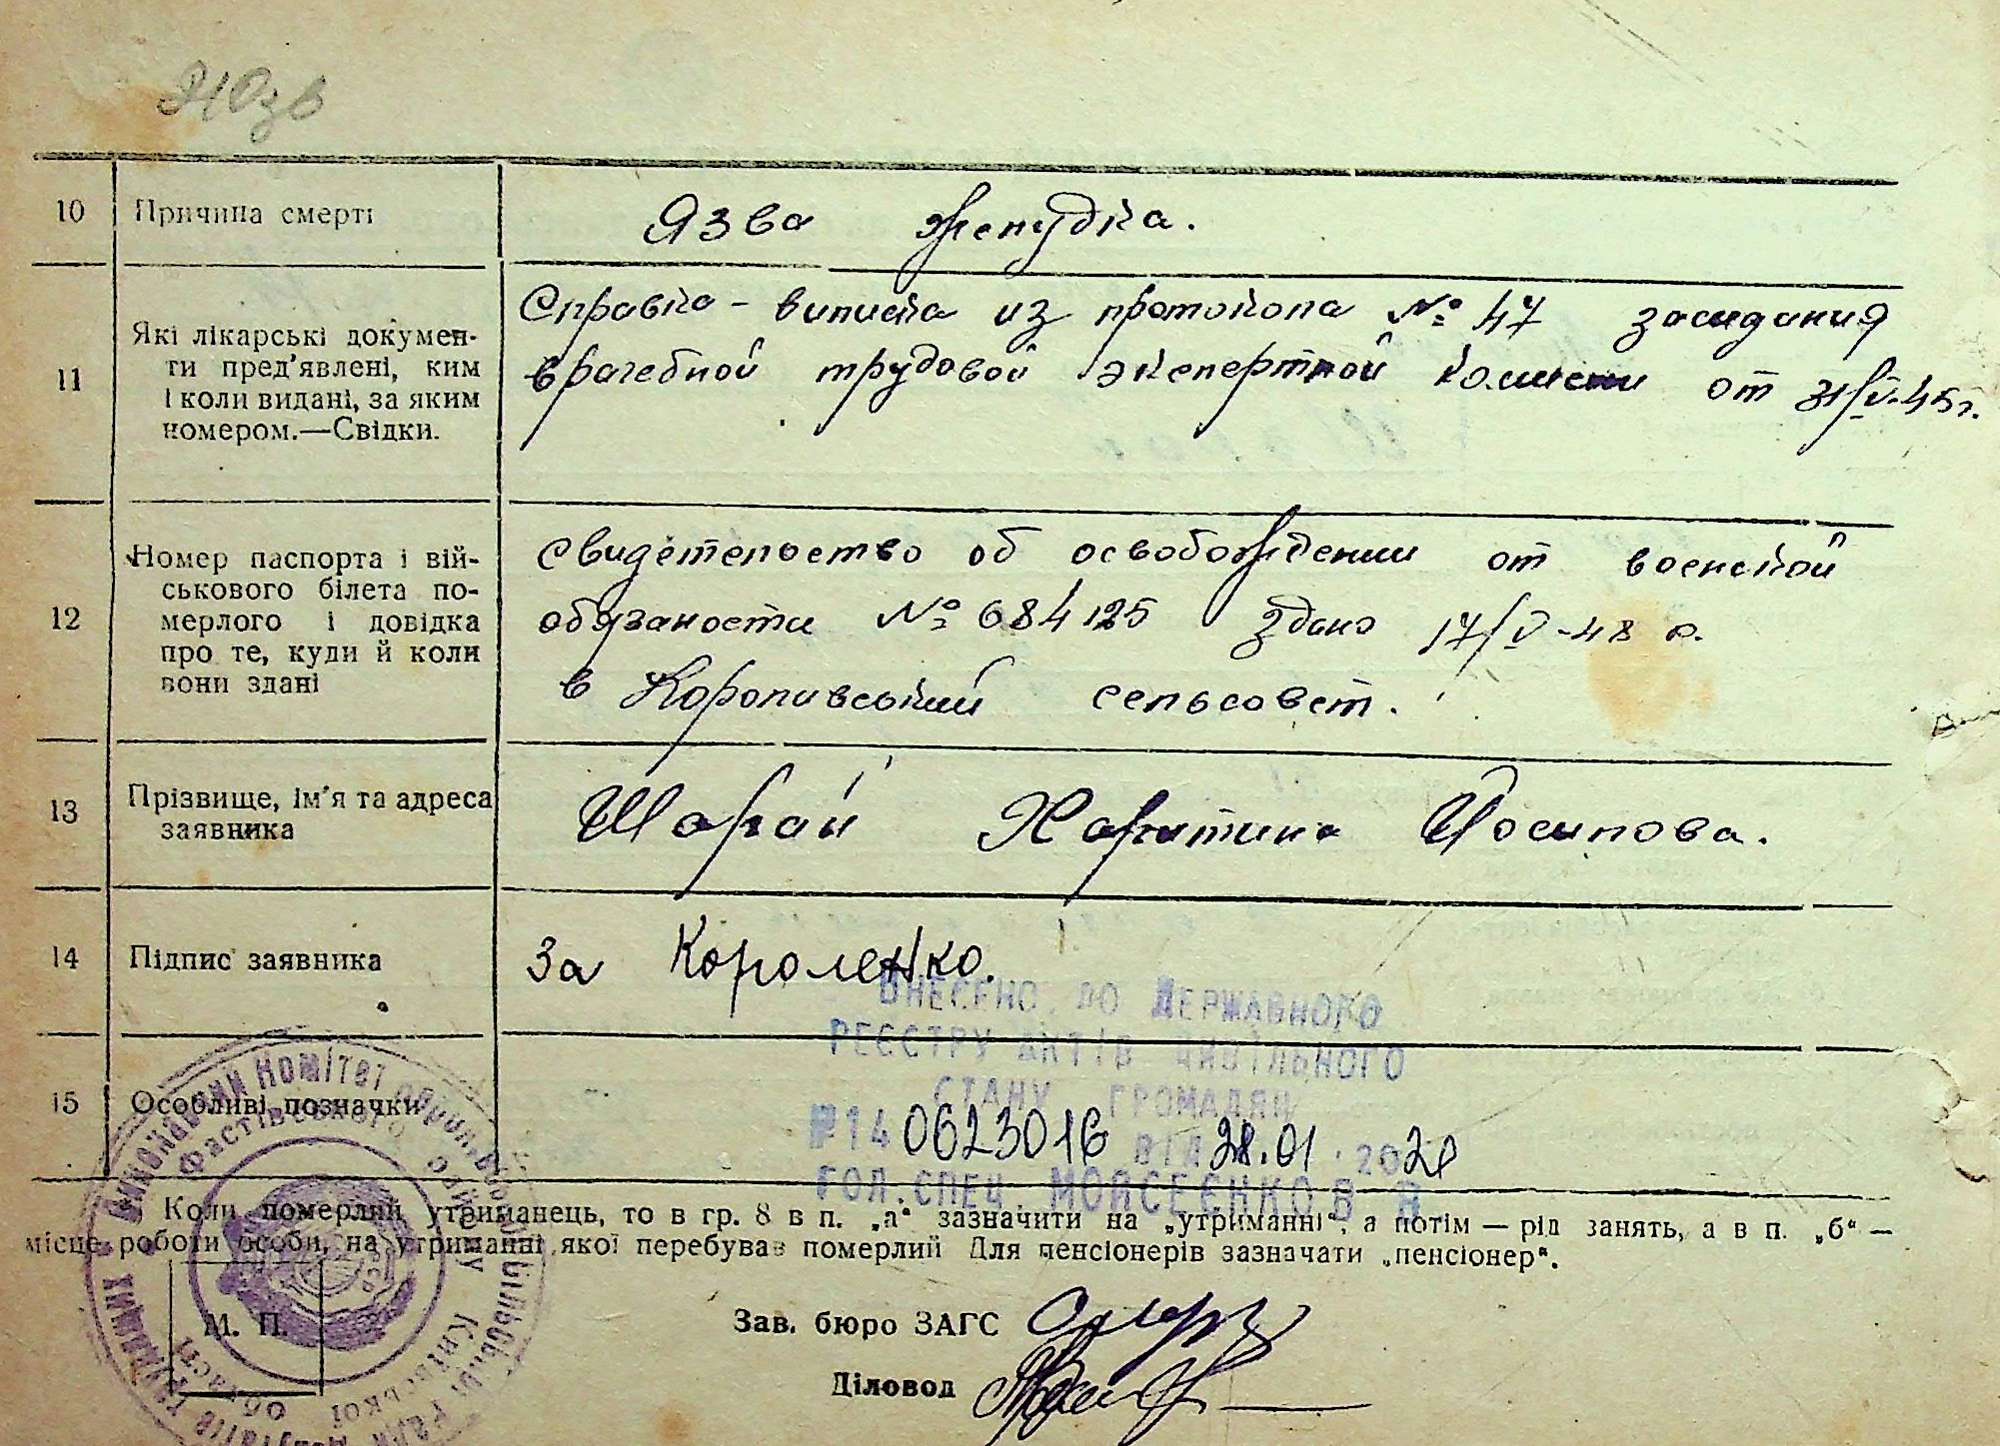 10 Причина смерті Язва желудка.
11 Які лікарські докумен-
ти пред'явлені, ким
і коли видані, за яким
номером.—Свідки.
Справка - виписка из протокола № 47 заседания
врачебной трудовой экспертной комисии от 31/V-45г.
12 Номер паспорта і вій-
ськового білета по-
мерлого і довідка
про те, куди й коли
вони здані
Свидетельство об освобождении от воинской
обязаности № 684125 здано 17/V-48 г.
в Королівський сельсовет.
13 Прізвище, ім'я та адреса
заявника
Шарай Харитина Йосипова.
14 Підпис заявника За Короленко.
15 Особливі позначки
ВНЕСЕНО ДО ДЕРЖАВНОГО
РЕЄСТРУ АКТІВ ЦИВІЛЬНОГО
СТАНУ ГРОМАДЯН
№14 0623016 ВІД 28.01.2020
ГОЛ.СПЕЦ. МОЙСЕЄНКО В В
Коли померлий утриманець, то в гр. 8 в п. „а“ зазначити на „утриманні“, а потім — рід занять, а в п. „б“ —
місце роботи особи, на утриманні якої перебував померлий Для пенсіонерів зазначати „пенсіонер“.
М. П.
Зав. бюро ЗАГС
Діловод
Виконавчий Комітет
Фастівського району Київської області